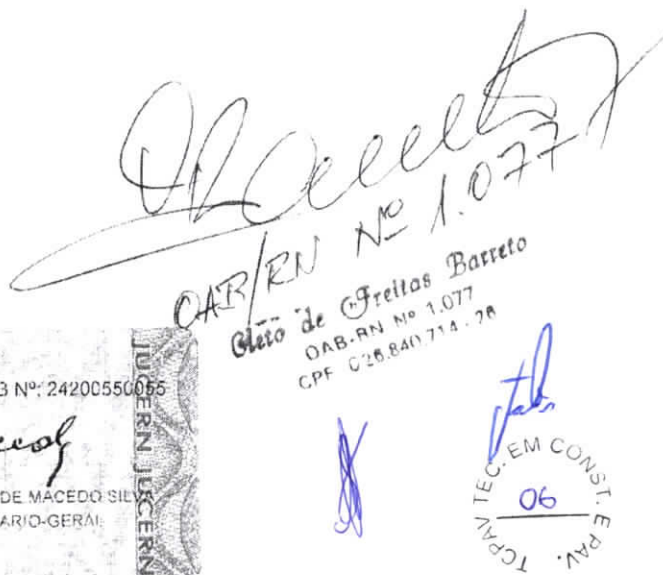 OAB/RN Nº 1.077
Cleto de Freitas Barreto
OAB-RN Nº 1.077
CPF 026.840.714-78
Nº: 24200550055
DE MACEDO SILVA
ARIO-GERAL
JUCERN JUCERN
TCPAV TEC. EM CONST. E PAV.
06